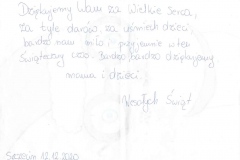 Dziękujemy Wam za Wielkie Serca,
za tyle darów, za uśmiech dzieci,
bardzo nam miło i przyjemnie w ten
Świąteczny czas. Bardzo bardzo dziękujemy
mama i dzieci
Wesołych Świąt
12.12.2020